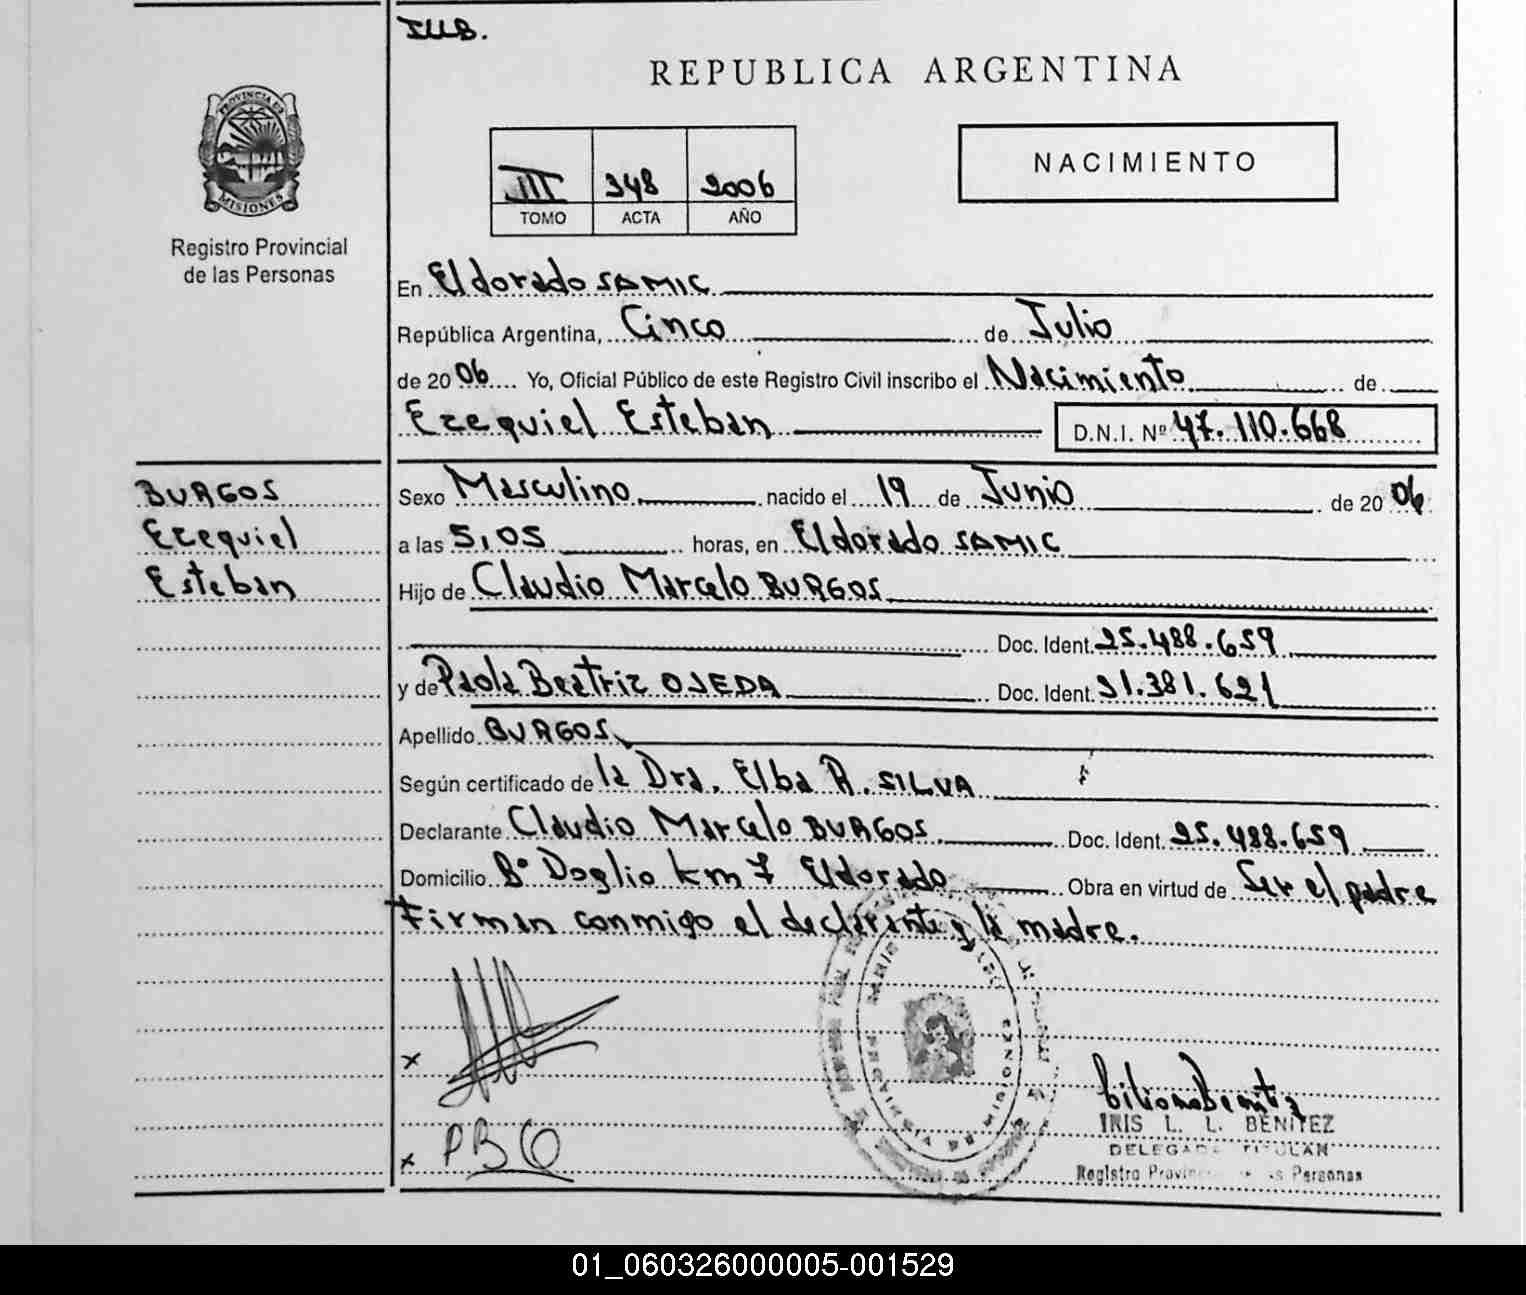 REPUBLICA ARGENTINA
PROVINCIA DE
MISIONES
Registro Provincial
de las Personas
III 348 2006
TOMO ACTA AÑO
NACIMIENTO
En Eldorado SAMIC
República Argentina, Cinco de Julio
de 2006 Yo, Oficial Público de este Registro Civil inscribo el Nacimiento de
Ezequiel Esteban D.N.I. Nº 47.110.668
BURGOS
Ezequiel
Esteban
Sexo Masculino nacido el 19 de Junio de 2006
a las 5,05 horas, en Eldorado SAMIC
Hijo de Claudio Marcelo BURGOS
Doc. Ident. 25.488.659
y de Paola Beatriz OJEDA Doc. Ident. 31.381.621
Apellido BURGOS
Según certificado de la Dra. Elba R. SILVA
Declarante Claudio Marcelo BURGOS Doc. Ident. 25.488.659
Domicilio Bº Doglio km 7 Eldorado Obra en virtud de Ser el padre
Firman conmigo el declarante y la madre.
x
x PBO
IRIS L. L. BENITEZ
DELEGADA TITULAR
Registro Provincial de las Personas
01_060326000005-001529